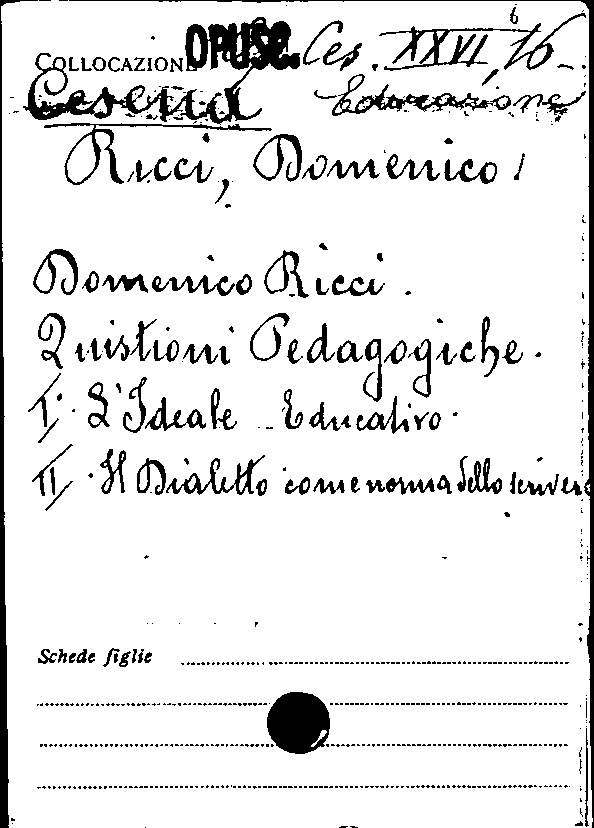 6
COLLOCAZIONE OPUSC. Ces. XXVI, 16
Cesena Educazione
Ricci, Domenico
Domenico Ricci.
Quistioni Pedagogiche.
I. L'Ideale Educativo.
II. Il Dialetto come norma dello scrivere
Schede figlie